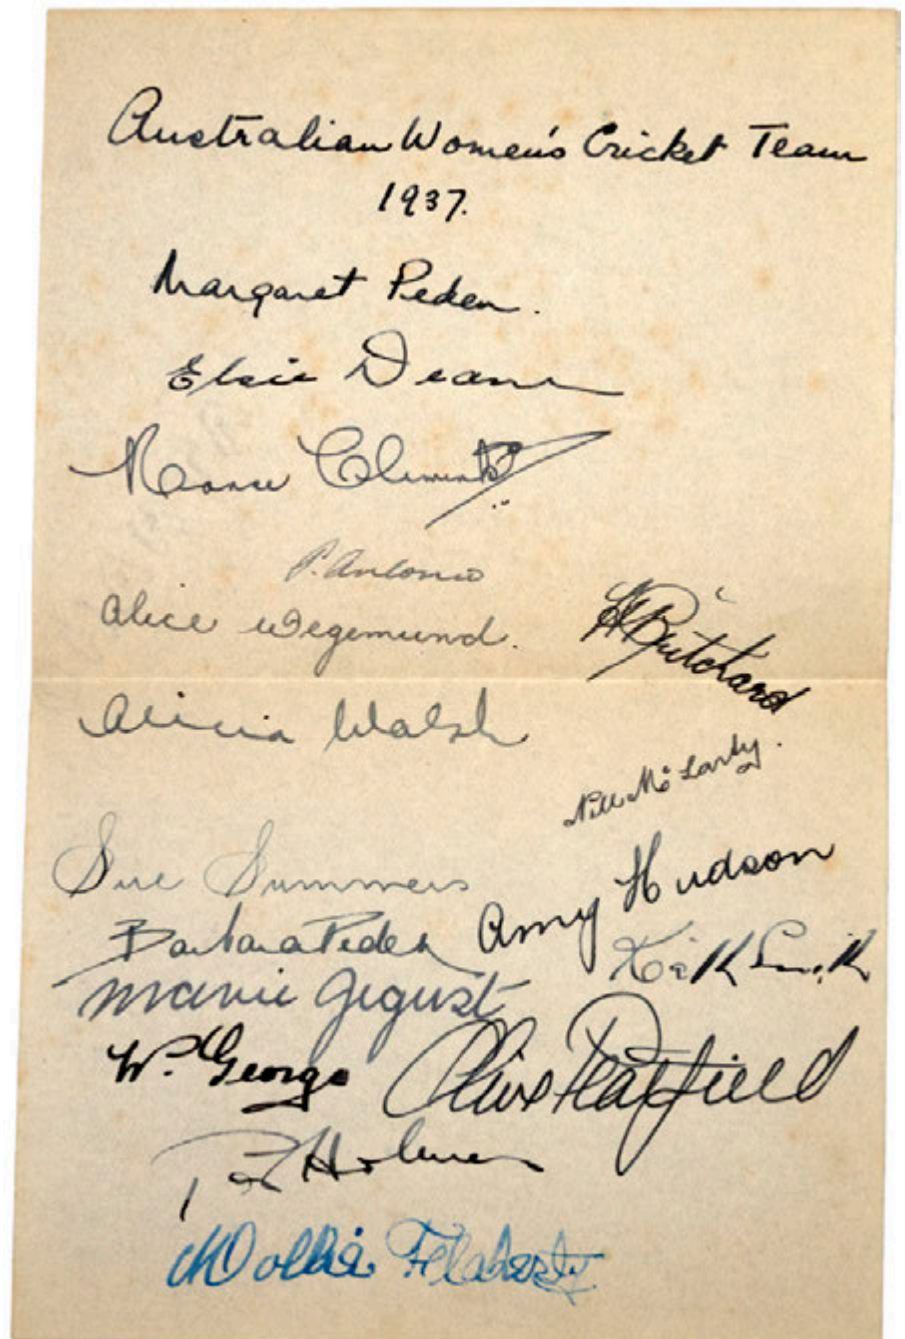 Australian Women's Cricket Team
1937.
Margaret Peden.
Elsie Deane
Nance Clements
P. Antonio
Alice Wegemund.
H Pritchard
Alicia Walsh
Nell McLarty.
Sue Summers
Amy Hudson
Barbara Peden
Kath Smith
Mavis Jegust
W. George
Olive Peatfield
Pat Holmes
Mollie Flaherty